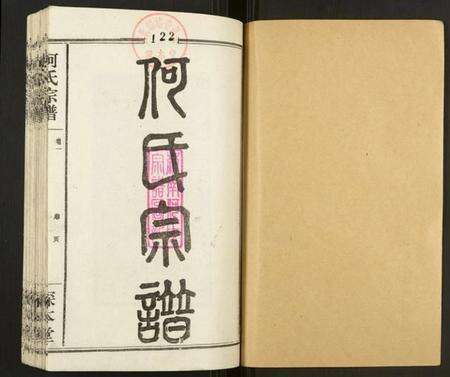 122
何氏宗譜
何氏宗譜
卷一
敦本堂